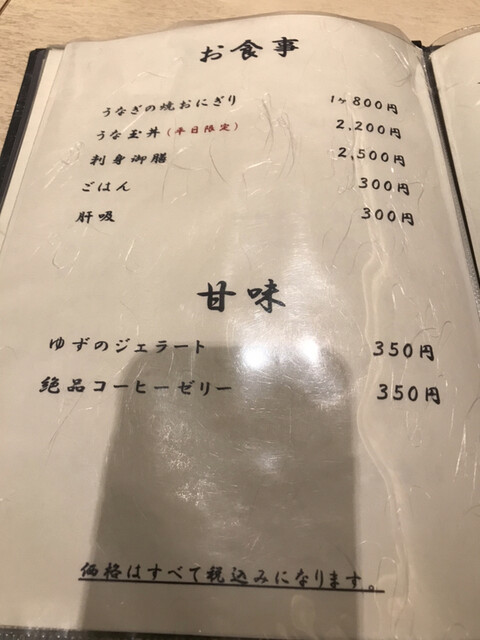 お食事
うなぎの焼おにぎり 1ヶ800円
うな玉丼(平日限定) 2,200円
刺身御膳 2,500円
ごはん 300円
肝吸 300円
甘味
ゆずのジェラート 350円
絶品コーヒーゼリー 350円
価格はすべて税込みになります。